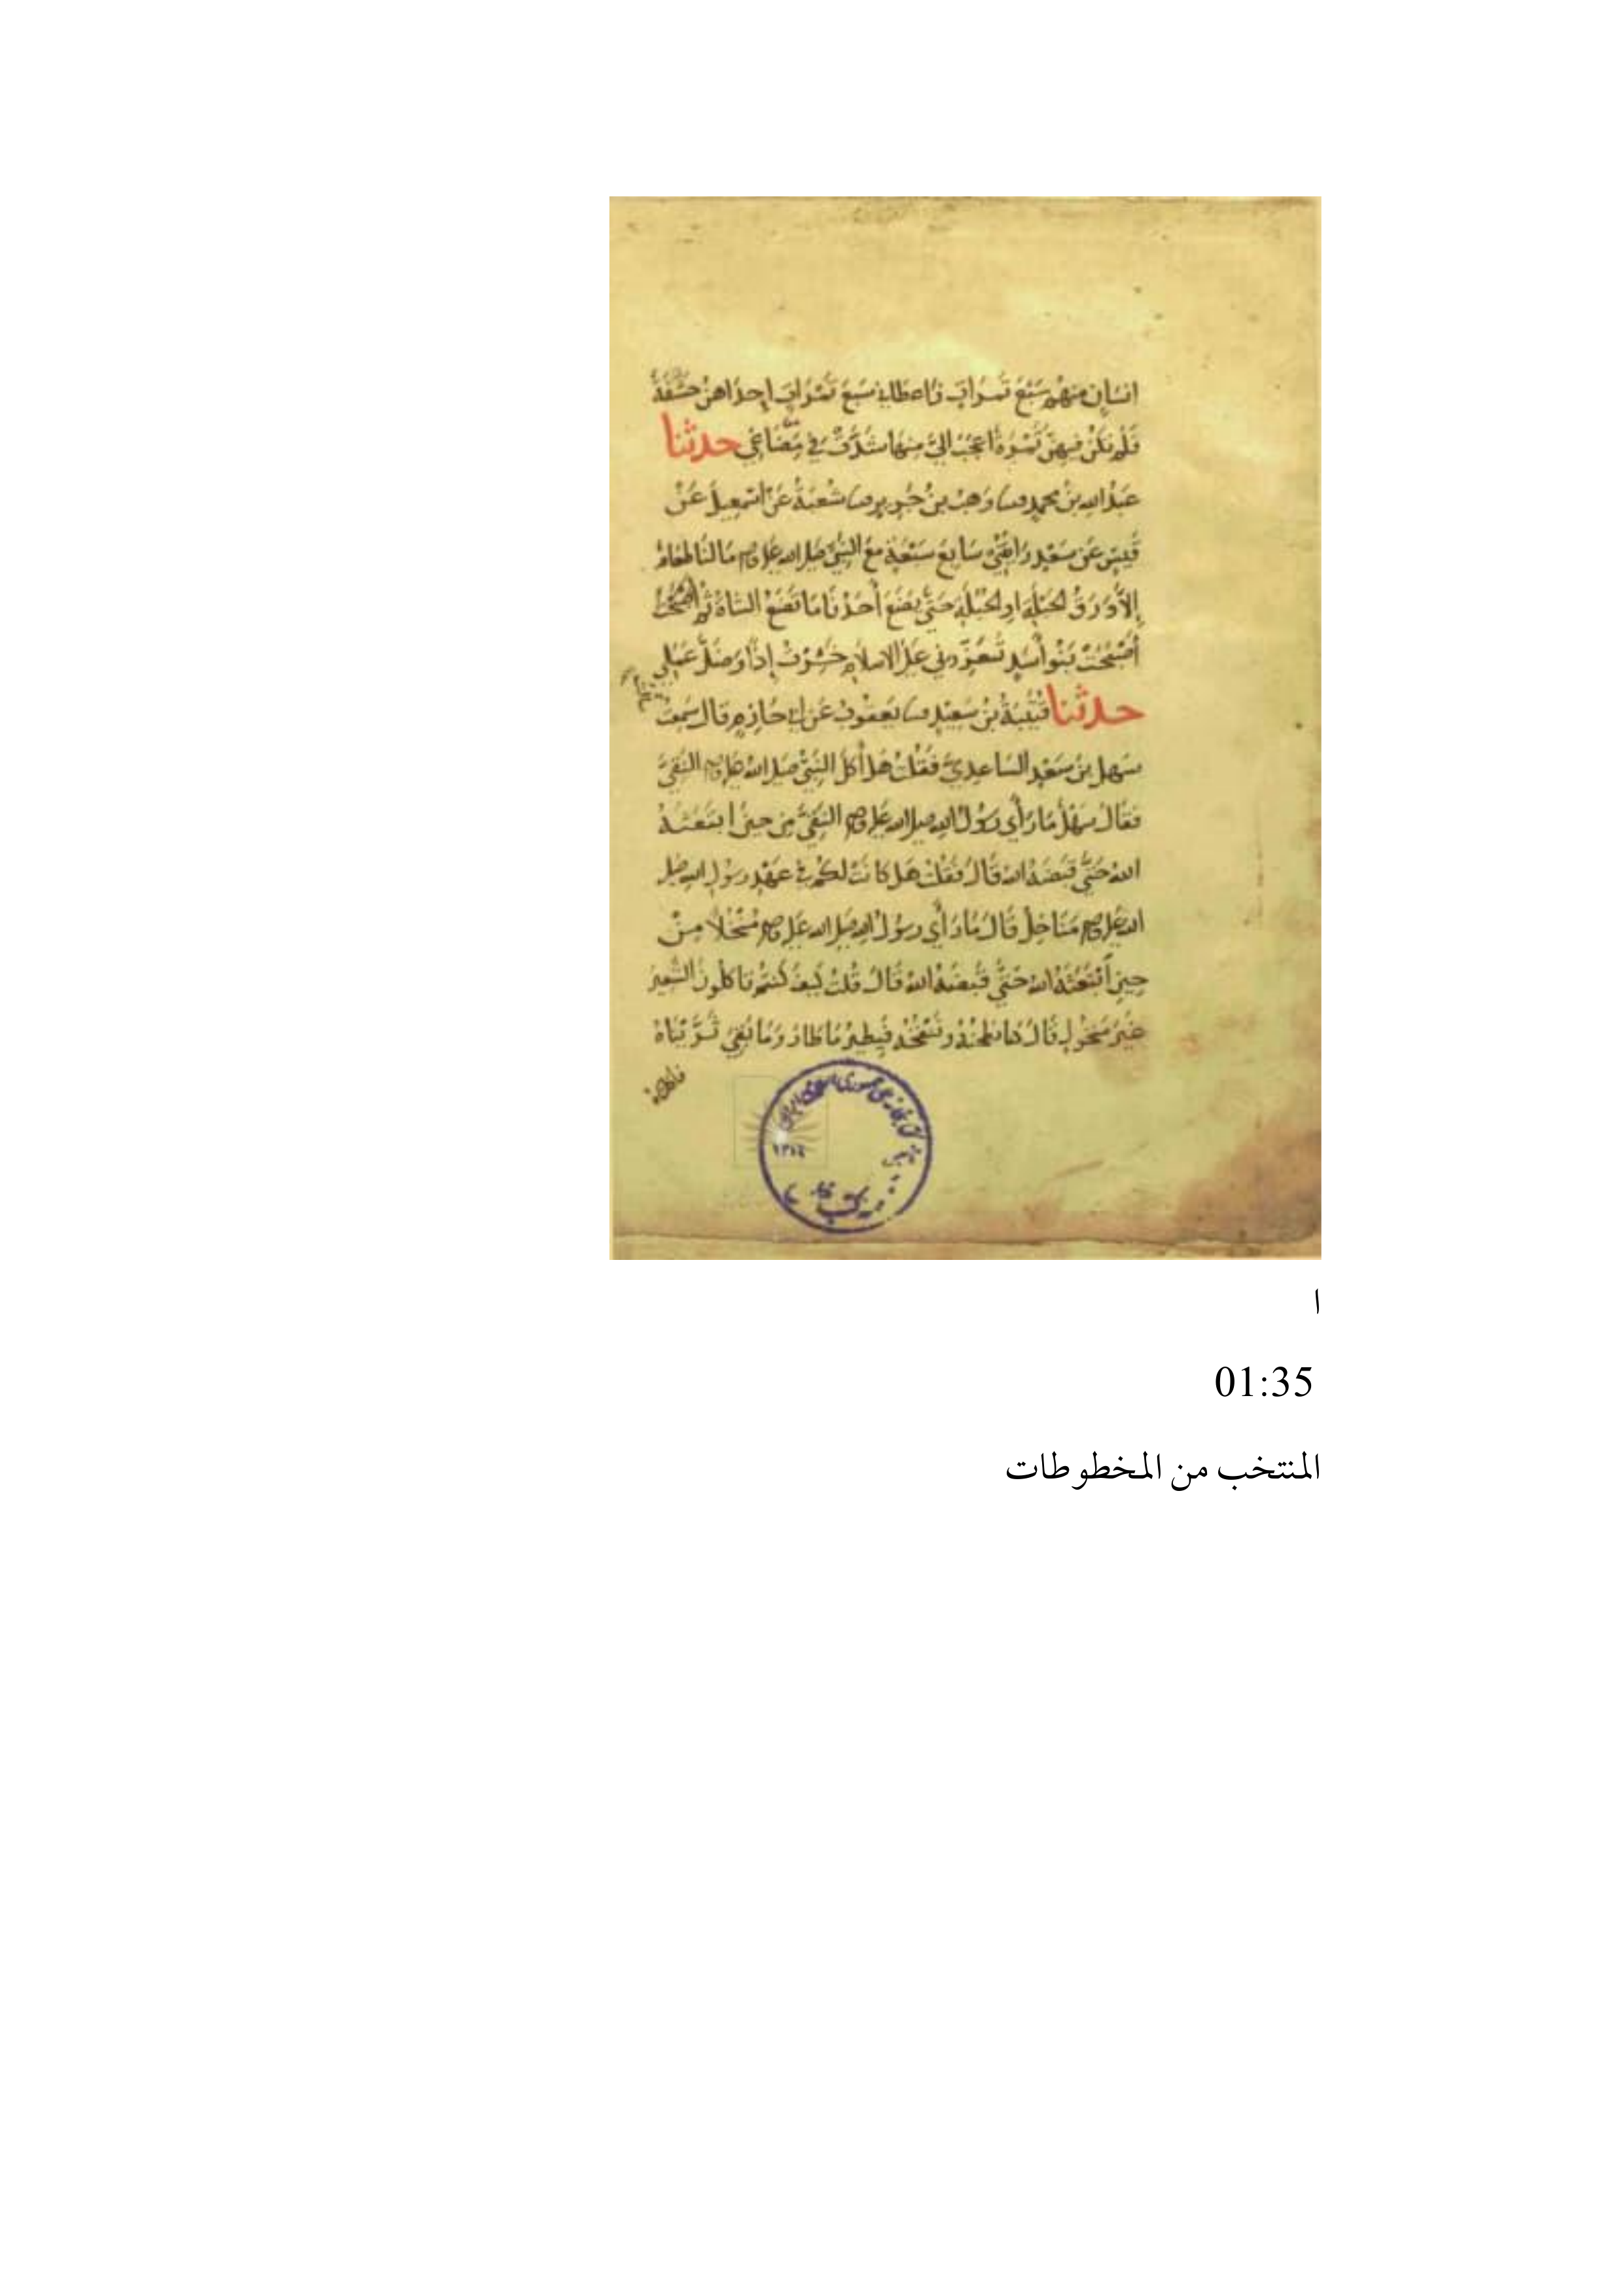 انسان منهم سبع تمرات فاعطاني سبع تمرات احداهن حشفة
فلم تكن فيهن تمرة اعجب الي منها شدت في مضاغي حدثنا
عبد الله بن محمد ثنا وهب بن جرير ثنا شعبة عن اسمعيل عن
قيس عن سعيد رايتني سابع سبعة مع النبي صلى الله عليه وسلم ما لنا طعام
إلا ورق الحبلة او الحبلة حتى يضع أحدنا ما تضع الشاة ثم اصبحت
أصبحت بنوا أسد تعزرني على الاسلام خسرت إذا وضل عملي
حدثنا قتيبة بن سعيد ثنا يعقوب عن ابي حازم قال سمعت
سهل بن سعد الساعدي فقلت هل أكل النبي صلى الله عليه وسلم النقي
فقال سهل ما رأي رسول الله صلى الله عليه وسلم النقي من حين ابتعثه
الله حتى قبضه الله قال فقلت هل كانت لكم في عهد رسول الله صلى
الله عليه وسلم مناخل قال ما رأي رسول الله صلى الله عليه وسلم منخلا من
حين ابتعثه الله حتى قبضه الله قال قلت كيف كنتم تاكلون الشعير
غير منخول قال كنا نطحنه وننفخه فيطير ما طار وما بقي ثريناه
١٣٠٤
ا
01:35
المنتخب من المخطوطات